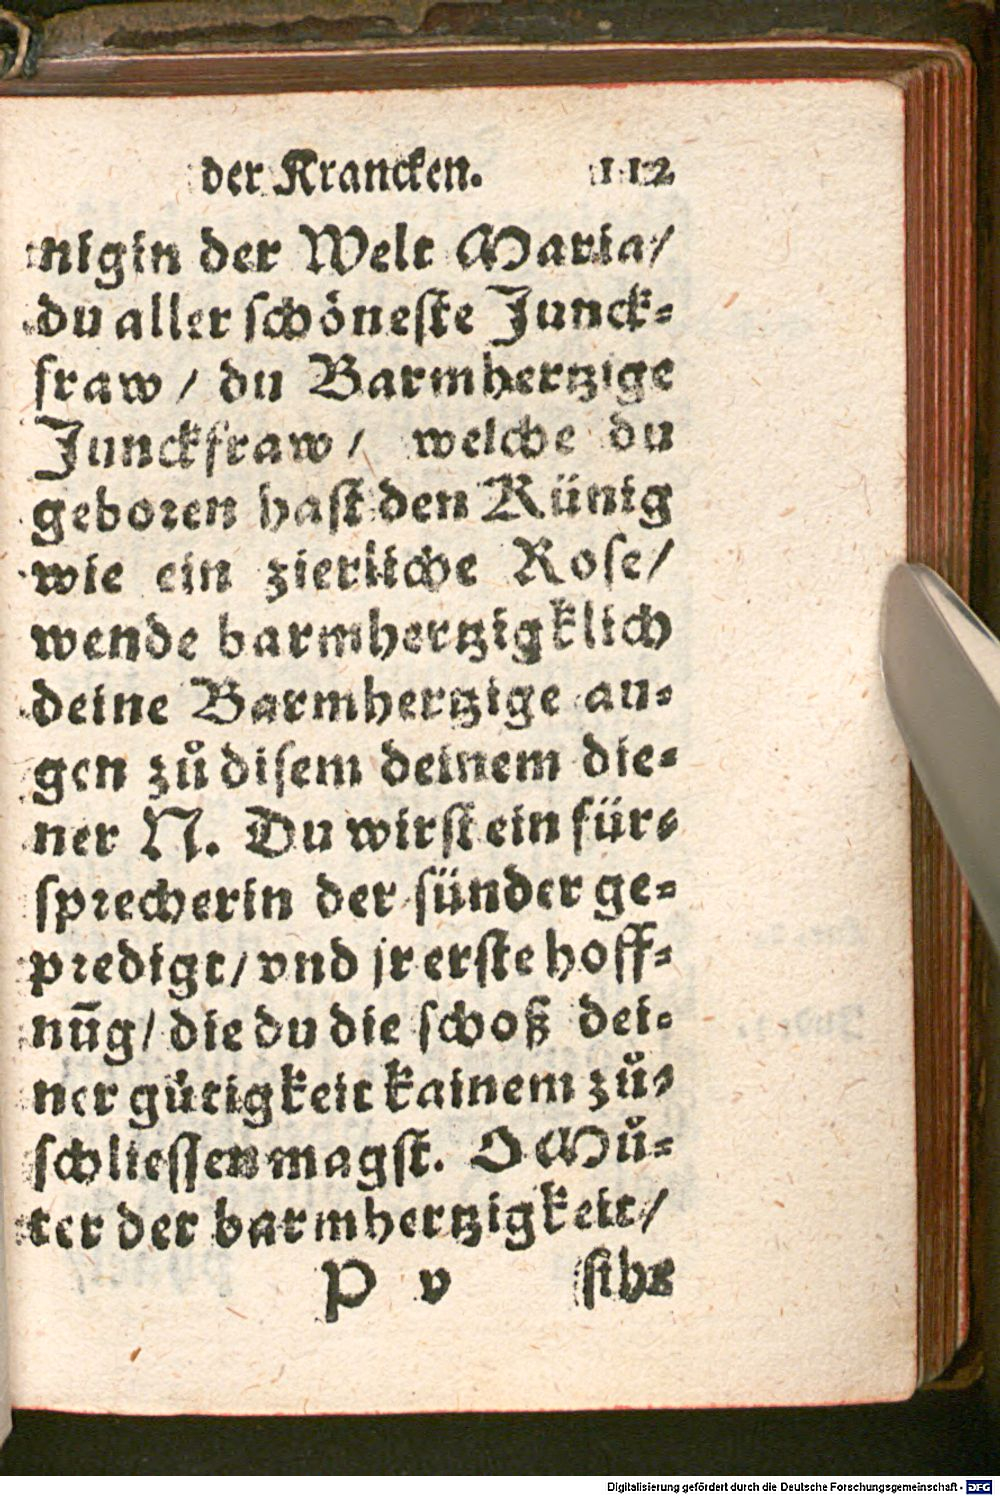 der Krancken. 112
nigin der Welt Maria/
du aller schöneste Junck⸗
fraw / du Barmhertzige
Junckfraw / welche du
geboren hast den Künig
wie ein zierliche Rose/
wende barmhertzigklich
deine Barmhertzige au⸗
gen zů disem deinem die⸗
ner N. Du wirst ein für⸗
sprecherin der sünder ge⸗
predigt/ vnd jr erste hoff⸗
nūg/ die du die schoß dei⸗
ner gütigkeit kainem zů⸗
schliessen magst. O Mů⸗
ter der barmhertzigkeit/
P v sihe
Digitalisierung gefördert durch die Deutsche Forschungsgemeinschaft - DFG